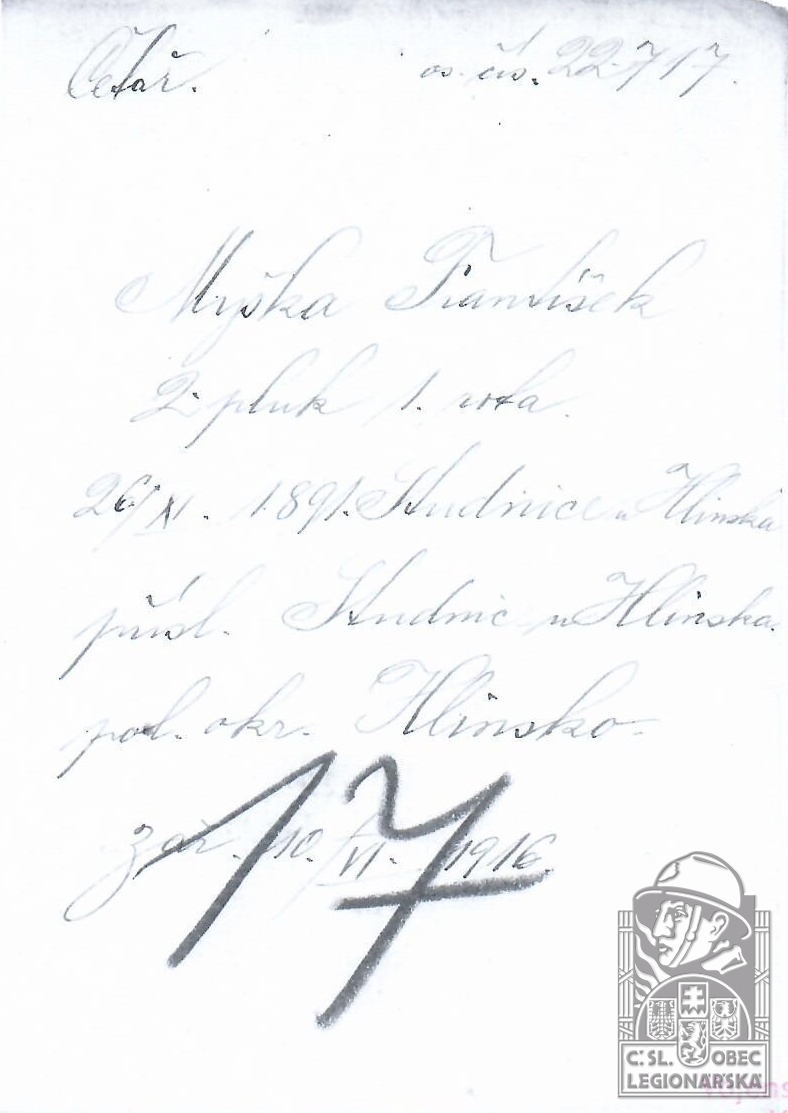 Četař. os. čís. 22717.
Myška František
2. pluk 1. rota.
26/XI. 1891. Studnice u Hlinska
přísl. Studnic u Hlinska.
pol. okr. Hlinsko.
zař. 10./VI. 1916
17
Č.SL. OBEC
LEGIONÁŘSKÁ